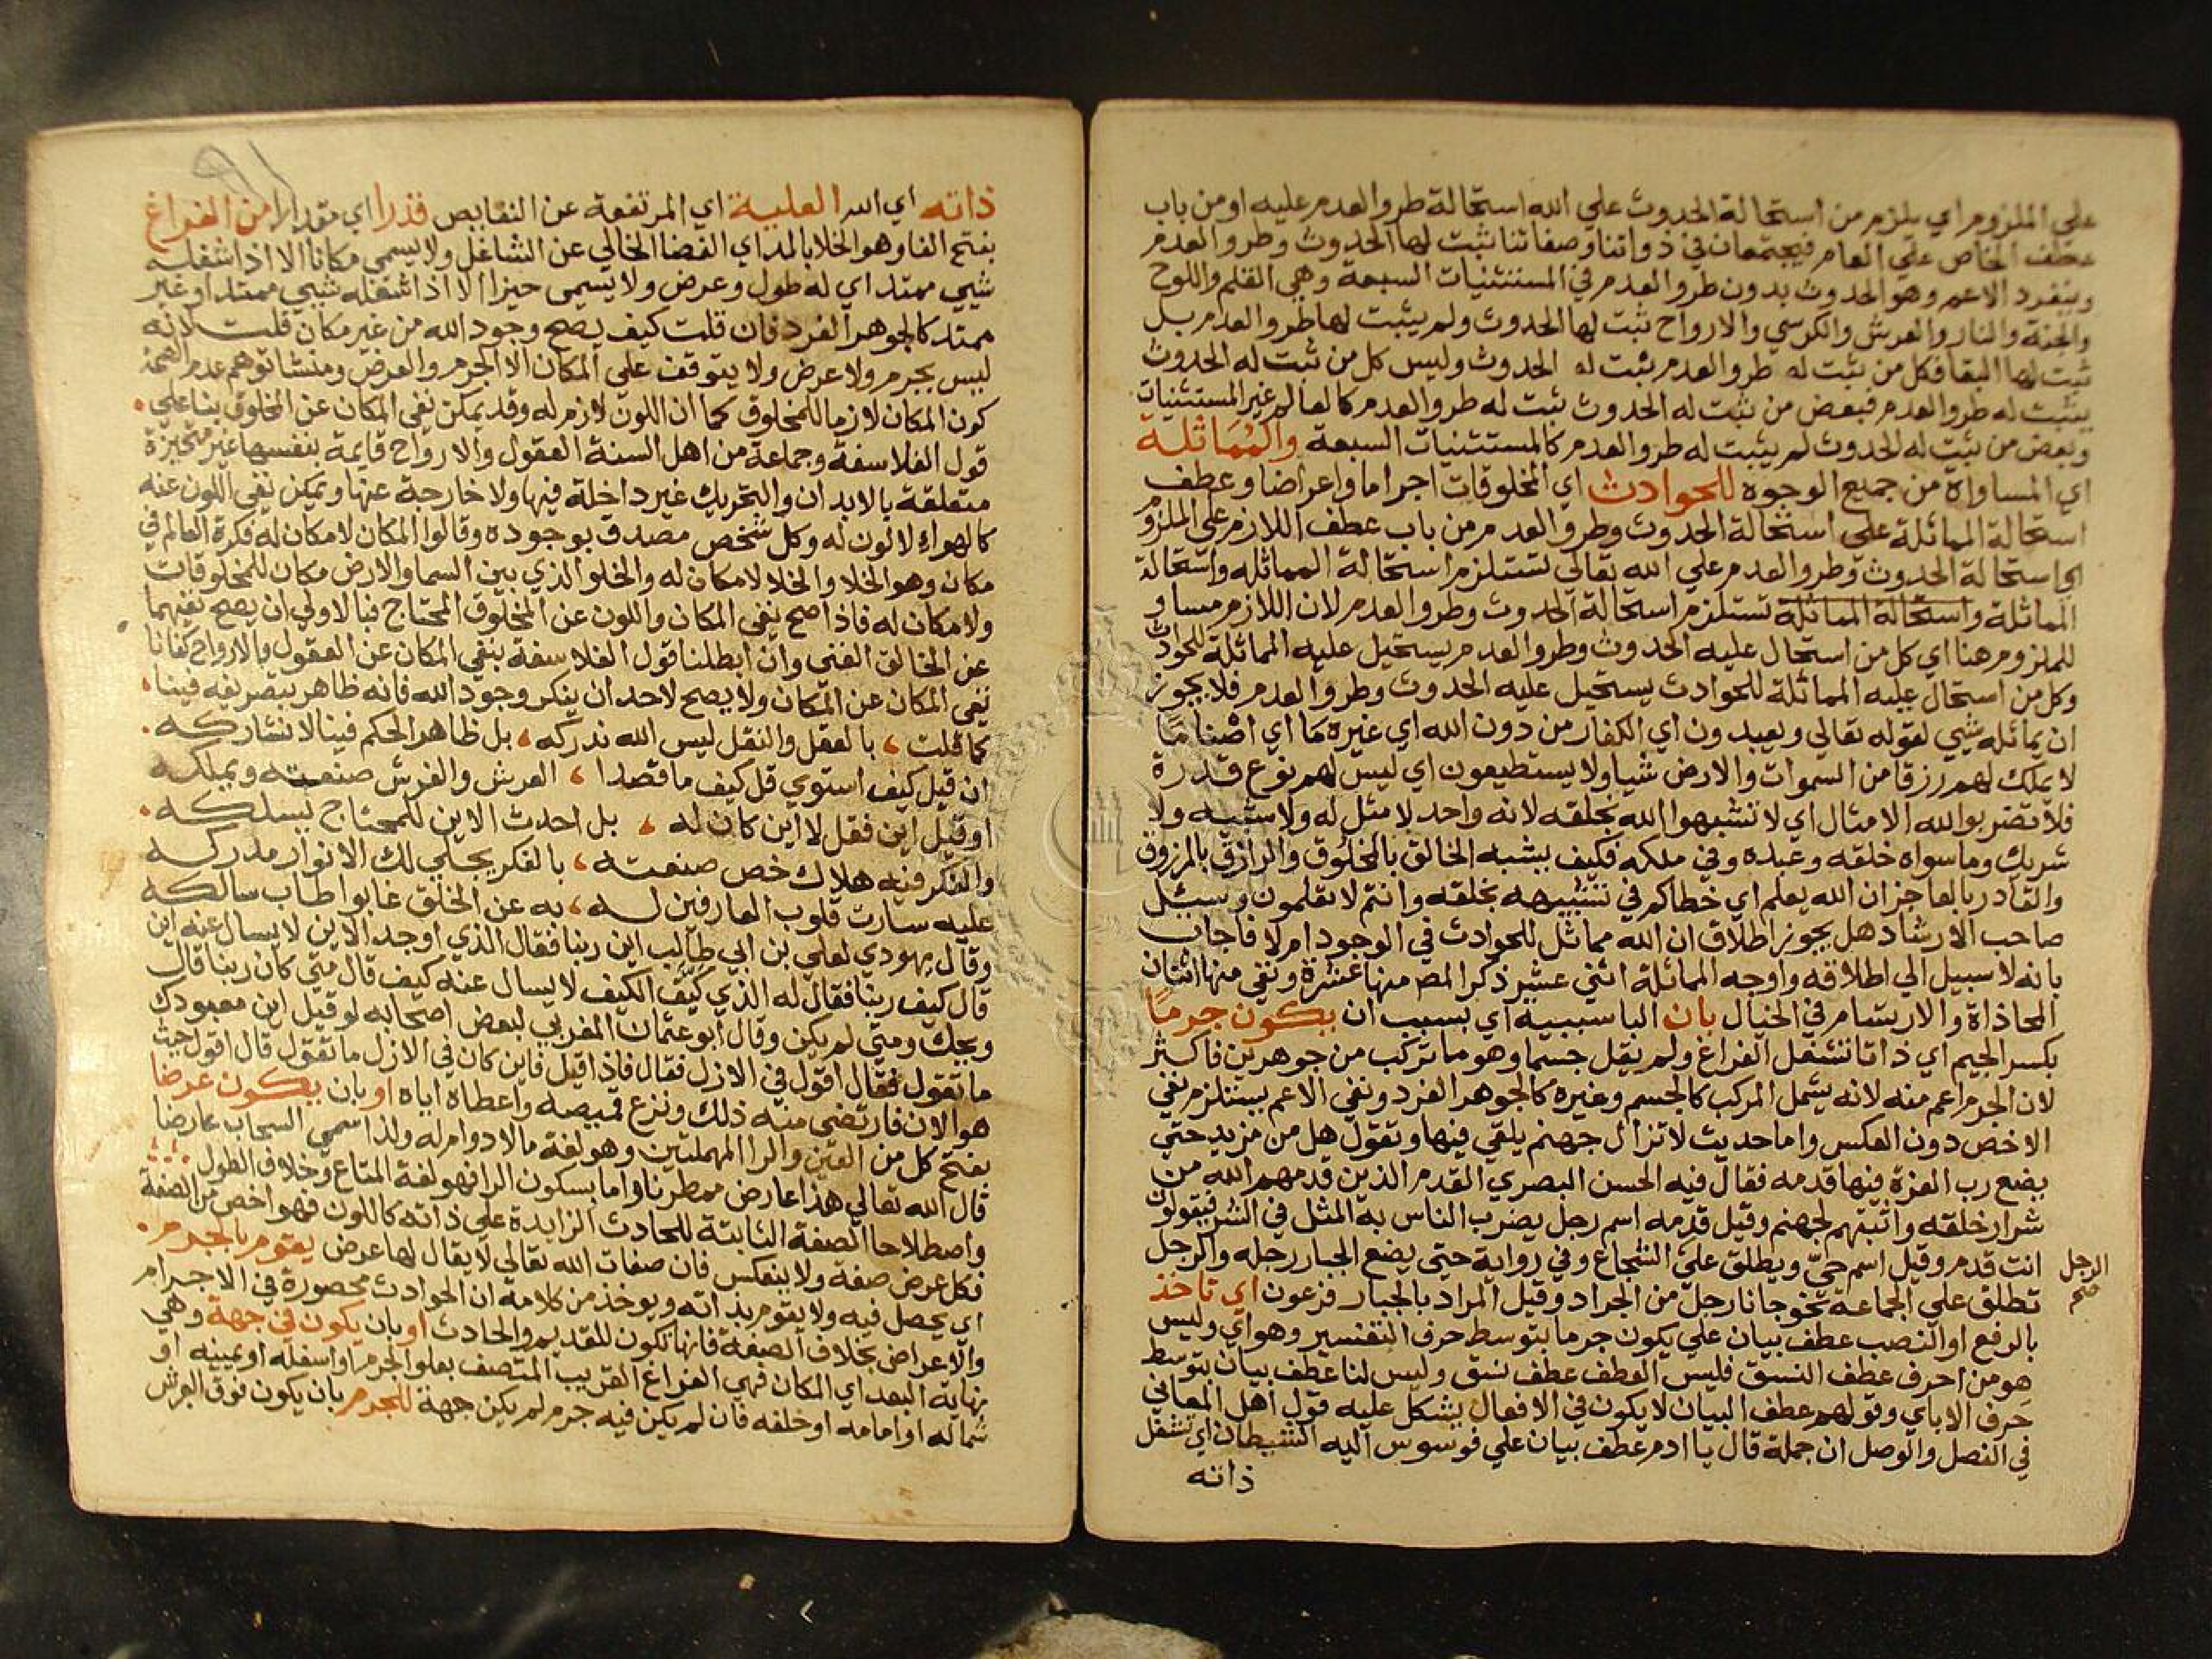 علي الملزوم اي يلزم من استحالة الحدوث علي الله استحالة طرو العدم عليه او من باب
عطف الخاص علي العام فيجتمعان في ذواتنا وصفاتنا ثبت لها الحدوث وطرو العدم
وينفرد الاعم وهو الحدوث بدون طرو العدم في المستثنيات السبعة وهي القلم واللوح
والجنة والنار والعرش والكرسي والارواح ثبت لها الحدوث ولم يثبت لها طرو العدم بل
ثبت لها البقا فكل من ثبت له طرو العدم ثبت له الحدوث وليس كل من ثبت له الحدوث
يثبت له طرو العدم فبعض من ثبت له الحدوث ثبت له طرو العدم كالعالم غير المستثنيات
وبعض من ثبت له الحدوث لم يثبت له طرو العدم كالمستثنيات السبعة والمماثلة
اي المساواة من جميع الوجوه للحوادث اي المخلوقات اجراما واعراضا وعطف
استحالة المماثلة علي استحالة الحدوث وطرو العدم من باب عطف اللازم علي الملزوم
اي استحالة الحدوث وطرو العدم علي الله تعالي تستلزم استحالة المماثله واستحالة
المماثلة واستحالة المماثلة تستلزم استحالة الحدوث وطرو العدم لان اللازم مساو
للملزوم هنا اي كل من استحال عليه الحدوث وطرو العدم يستحيل عليه المماثلة للحوادث
وكل من استحال عليه المماثلة للحوادث يستحيل عليه الحدوث وطرو العدم فلا يجوز
ان يماثله شيي لقوله تعالي ويعبدون اي الكفار من دون الله اي غيره ما اي اصناما
لا يملك لهم رزقا من السموات والارض شيا ولا يستطيعون اي ليس لهم نوع قدرة
فلا تضربوا لله الامثال اي لا تشبهوا الله بخلقه لانه واحد لا مثل له ولا شبيه ولا
شريك وما سواه خلقه وعبده وفي ملكه فكيف يشبه الخالق بالمخلوق والرازق بالمرزوق
والقادر بالعاجز ان الله يعلم اي خطاكم في تشبيهه بخلقه وانتم لا تعلمون وسئل
صاحب الارشاد هل يجوز اطلاق ان الله مماثل للحوادث في الوجود ام لا فاجاب
بانه لا سبيل الي اطلاقه واوجه المماثلة اثني عشر ذكر المص منها عشرة ونفي منها اثنان
المحاذاة والارتسام في الخيال بان البا سببية اي بسبب ان يكون جرما
بكسر الجيم اي ذاتا تشغل الفراغ ولم يقل جسما وهو ما تركب من جوهرين فاكثر
لان الجرم اعم منه لانه يشمل المركب كالجسم وغيره كالجوهر الفرد ونفي الاعم يستلزم نفي
الاخص دون العكس واما حديث لا تزال جهنم يلقي فيها وتقول هل من مزيد حتي
يضع رب العزة فيها قدمه فقال فيه الحسن البصري القدم الذين قدمهم الله من
شرار خلقه واثبتهم لجهنم وقيل قدمه اسم رجل يضرب الناس به المثل في الشر فيقولون
انت قدم وقيل اسم حي ويطلق علي الشجاع وفي رواية حتي يضع الجبار رجله والرجل
الرجل
تطلق علي الجماعة نحو جانا رجل من الجراد وقيل المراد بالجبار فرعون اي تاخذ
بالرفع او النصب عطف بيان علي يكون جرما بتوسط حرف التفسير وهو اي وليس
هو من احرف عطف النسق فليس العطف عطف نسق وليس لنا عطف بيان بتوسط
حرف الا باي وقولهم عطف البيان لا يكون في الافعال يشكل عليه قول اهل المعاني
في الفصل والوصل ان جملة قال يا ادم عطف بيان علي فوسوس اليه الشيطان اي تشغل
ذاته
ذاته اي الله العلية اي المرتفعة عن النقايص قدرا اي مقدارا من الفراغ
بفتح الفا وهو الخلا بالمد اي الفضا الخالي عن الشاغل ولا يسمي مكانا الا اذا شغله
شيي ممتد اي له طول وعرض ولا يسمى حيزا الا اذا شغله شيي ممتد او غير
ممتد كالجوهر الفرد فان قلت كيف يصح وجود الله من غير مكان قلت لانه
ليس بجرم ولا عرض ولا يتوقف علي المكان الا الجرم والعرض ومنشا توهم عدم الصحة
كون المكان لازما للمخلوق كما ان اللون لازم له وقد يمكن نفي المكان عن المخلوق بنا علي
قول الفلاسفة وجماعة من اهل السنة العقول والارواح قايمة بنفسها غير متحيزة
متعلقة بالابدان والتحريك غير داخلة فيها ولا خارجة عنها ويمكن نفي اللون عنه
كالهواء لا لون له وكل شخص مصدق بوجوده وقالوا المكان لا مكان له فكرة العالم في
مكان وهو الخلا والخلا لا مكان له والخلو الذي بين السما والارض مكان للمخلوقات
ولا مكان له فاذا صح نفي المكان واللون عن المخلوق المحتاج فبالاولي ان يصح نفيهما
عن الخالق الغني وان ابطلنا قول الفلاسفة بنفي المكان عن العقول والارواح كفانا
نفي المكان عن المكان ولا يصح لاحد ان ينكر وجود الله فانه ظاهر بتصريفه فينا
كما قلت بالعقل والنقل ليس الله ندركه بل ظاهر الحكم فينا لا نشاركه
ان قيل كيف استوي قل كيف ما قصدا العرش والفرش صنعته ويملكه
او قيل اين فقل لا اين كان له بل احدث الاين للمحتاج يسلكه
والفكر فيه هلاك خص صنعته بالفكر يجلي لك الانوار مدركه
عليه سارت قلوب العارفين له به عن الخلق غابوا طاب سالكه
وقال يهودي لعلي بن ابي طالب اين ربنا فقال الذي اوجد الاين لا يسال عنه اين
قال كيف ربنا فقال له الذي كيف الكيف لا يسال عنه كيف قال متي كان ربنا قال
ويحك ومتي لم يكن وقال ابو عثمان المغربي لبعض اصحابه لو قيل اين معبودك
ما تقول فقال اقول في الازل فقال فاذا قيل فاين كان في الازل ما تقول قال اقول حيث
هو الان فارتضي منه ذلك ونزع قميصه واعطاه اياه او بان يكون عرضا
بفتح كل من العين والرا المهملتين وهو لغة ما لا دوام له ولذا سمي السحاب عارضا
قال الله تعالي هذا عارض ممطرنا واما بسكون الرا فهو لغة المتاع وخلاف الطول
واصطلاحا الصفة الثابتة للحادث الزايدة علي ذاته كاللون فهو اخص من الصفة
فكل عرض صفة ولا ينعكس فان صفات الله تعالي لا يقال لها عرض يقوم بالجرم
اي يحصل فيه ولا يقوم بذاته ويوخذ من كلامه ان الحوادث محصورة في الاجرام
والاعراض بخلاف الصفة فانها تكون للقديم والحادث او بان يكون في جهة وهي
نهاية البعد اي المكان فهي الفراغ القريب المتصف بعلو الجرم او اسفله او يمينه او
شماله او امامه او خلفه فان لم يكن فيه جرم لم يكن جهة للجرم بان يكون فوق العرش